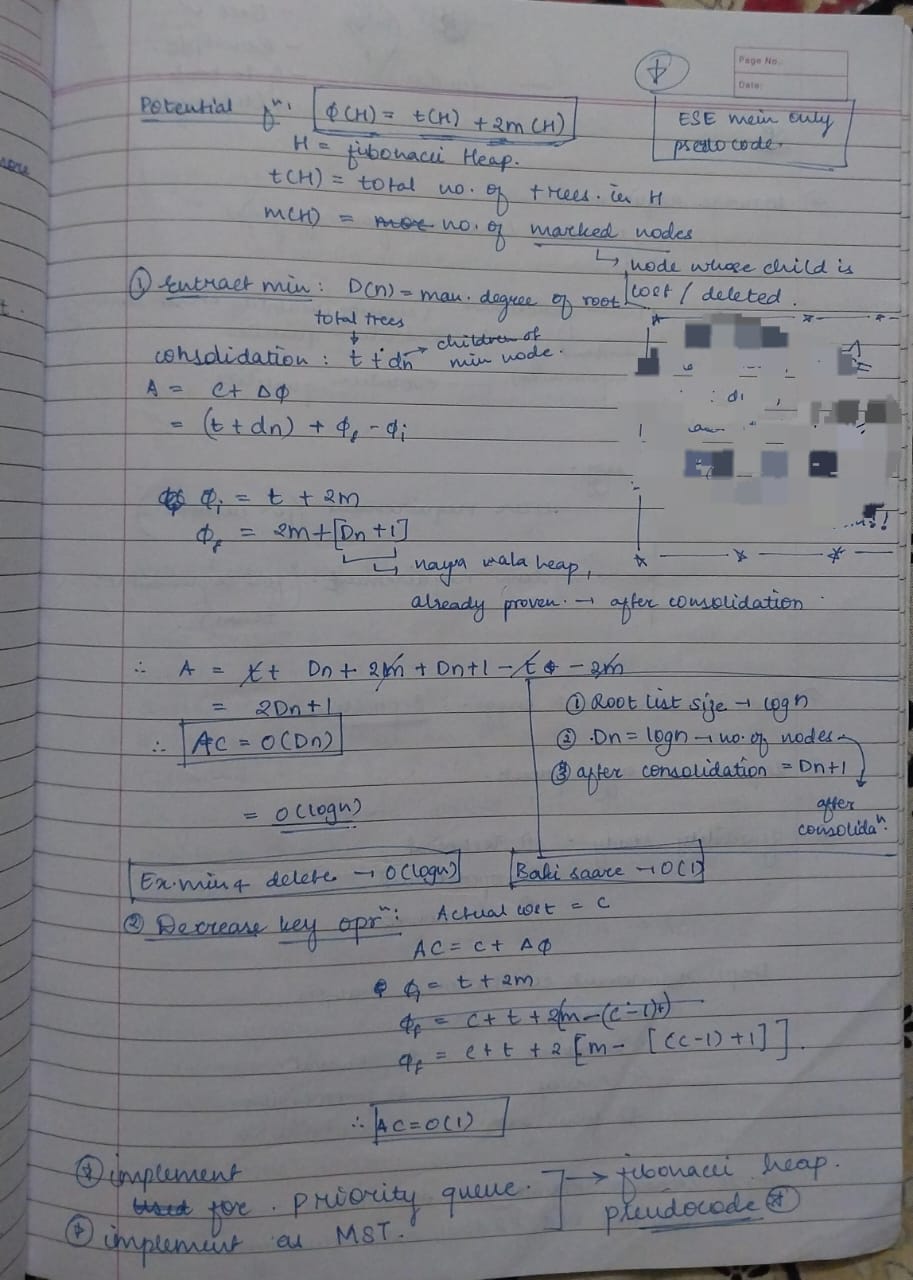 Page No.
Date:
Potential fⁿ: ϕ(H) = t(H) + 2m(H)
ESE mein only
pseudocode.
H = fibonacci Heap.
t(H) = total no. of trees. in H
m(H) = no. of marked nodes
↳ node whose child is
lost / deleted.
① Extract min: D(n) = max. degree of root
total trees
consolidation: t + dn → children of
min node.
A = C + Δϕ
= (t + dn) + ϕf - ϕi
ϕi = t + 2m
ϕf = 2m + [Dn + 1]
↳ naya wala heap,
already proven. → after consolidation
∴ A = t + Dn + 2m + Dn + 1 - t - 2m
= 2Dn + 1
∴ AC = O(Dn)
= O(logn)
① Root list size → logn
② Dn = logn → no. of nodes
③ after consolidation = Dn+1
after
consolidaⁿ.
Ex. min & delete → O(logn)
Baki saare → O(1)
② Decrease key oprⁿ: Actual cost = C
AC = C + Δϕ
ϕi = t + 2m
ϕf = C + t + 2(m - (C-1)+)
ϕf = C + t + 2 [m - [(C-1) + 1]].
∴ AC = O(1)
implement
for. priority queue.
implement as MST.
→ fibonacci heap.
pseudocode